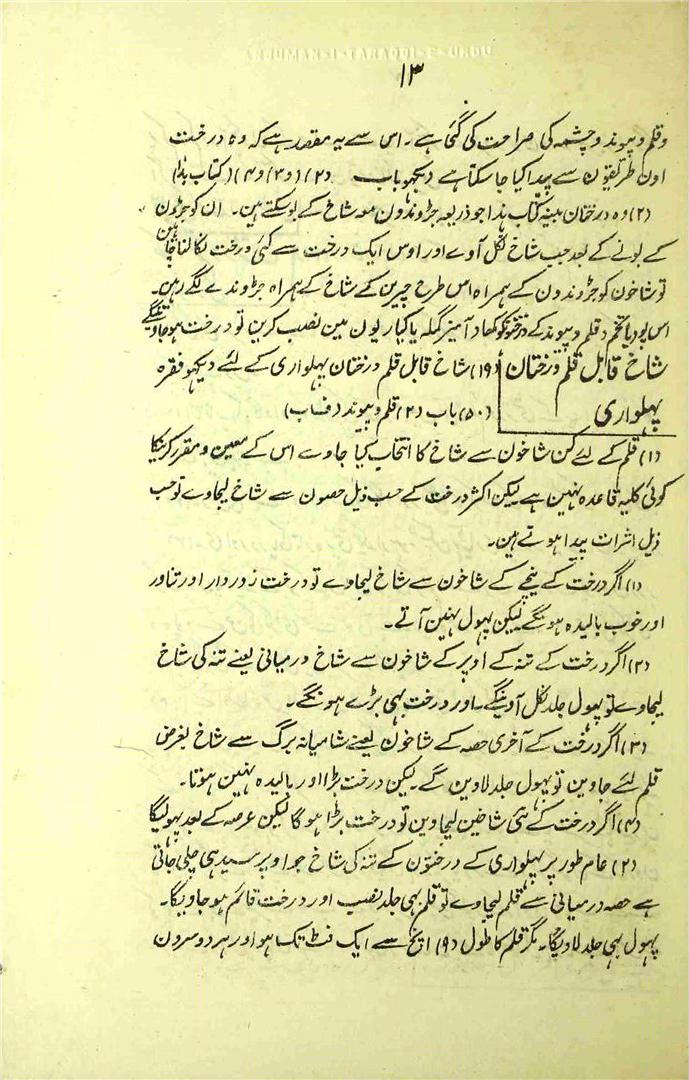 ANJUMAN-I-TARAQQI-E-URDU
۱۳
وقلم و پیوند و چشمہ کی صراحت کی گئی ہے۔ اس سے یہ مقصد ہے کہ وہ درخت
اون طریقون سے پیدا کیا جا سکتا ہے دیکھو باب (۲) و (۳) و (۴) (کتاب ہذا)
(۲) وہ درختان مبینہ کتاب ہذا جو ذریعہ جڑوندون معہ شاخ کے بو سکتے ہین۔ ان کو جڑون
کے بونے کے بعد جب شاخ نکل آوے اور اوس ایک درخت سے کئی درخت لگانا چاہین
تو شاخون کو جڑوندون کے ہمراہ اس طرح چیرین کے شاخ کے ہمراہ جڑوندے لگے رہین۔
اس پود یا تخم و قلم و پیوند کے درختونکو کھاد آمیز گملہ یا کیاریون مین نصب کرین تو درخت ہو جاوینگے
شاخ قابل قلم درختان پہلواری
(۱۹) شاخ قابل قلم درختان پہلواری کے لئے دیکھو فقرہ
(۵۰) باب (۲) قلم و پیوند
(۱) قلم کے لئے کن شاخون سے شاخ کا انتخاب کیا جاوے اس کے معین و مقرر کرنیکا
کوئی کلیہ قاعدہ نہین ہے لیکن اکثر درخت کے حسب ذیل حصون سے شاخ لیجاوے تو حسب
ذیل اثرات پیدا ہوتے ہین۔
(۱) اگر درخت کے نیچے کے شاخون سے شاخ لیجاوے تو درخت زوردار اور تناور
اور خوب بالیدہ ہونگے لیکن پہول نہین آتے۔
(۲) اگر درخت کے تنہ کے اوپر کے شاخون سے شاخ درمیانی لیعنے تنہ کی شاخ
لیجاوے تو پہول جلد نکل آوینگے۔ اور درخت بہی بڑے ہونگے۔
(۳) اگر درخت کے آخری حصہ کے شاخون لیعنے شامیانہ برگ سے شاخ بغرض
قلم لئے جاوین تو پہول جلد لاوین گے۔ لیکن درخت بڑا اور بالیدہ نہین ہوتا۔
(۴) اگر درخت کے نئی شاخین لیجاوین تو درخت بڑا ہوگا لیکن عرصہ کے بعد پہولیگا
(۲) عام طور پر پہلواری کے درختون کے تنہ کی شاخ جو اوپر سیدہی چلی جاتی
ہے حصہ درمیانی سے قلم لیجاوے تو قلم بہی جلد نصب اور درخت قائم ہو جاویگا۔
پہول بہی جلد لاویگا۔ مگر قلم کا طول (۹) اینچ سے ایک فٹ تک ہو اور ہر دو سرون